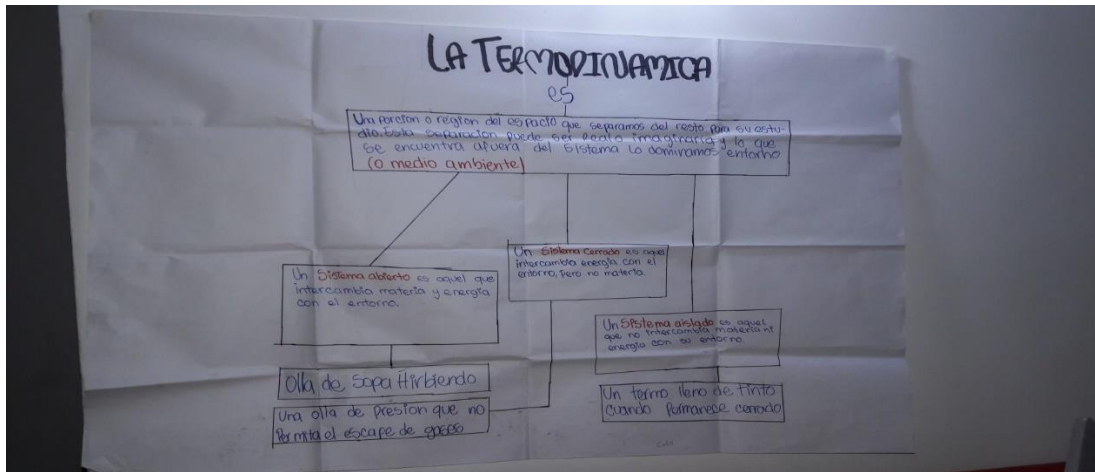 LA TERMODINAMICA
es
Una porcion o region del espacio que separamos del resto para su estu-
dio. Esta separacion puede ser real o imaginaria y lo que
se encuentra afuera del sistema lo dominamos entorno
(o medio ambiente)
Un Sistema abierto es aquel que
intercambia materia y energía
con el entorno.
Un Sistema Cerrado es aquel
intercambia energía con el
entorno, Pero no materia.
Un Sistema aislado es aquel
que no intercambia materia ni
energía con su entorno.
Olla de Sopa Hirbiendo
Una olla de Presion que no
Permita el escape de gases
Un termo lleno de tinto
cuando Permanece cerrado